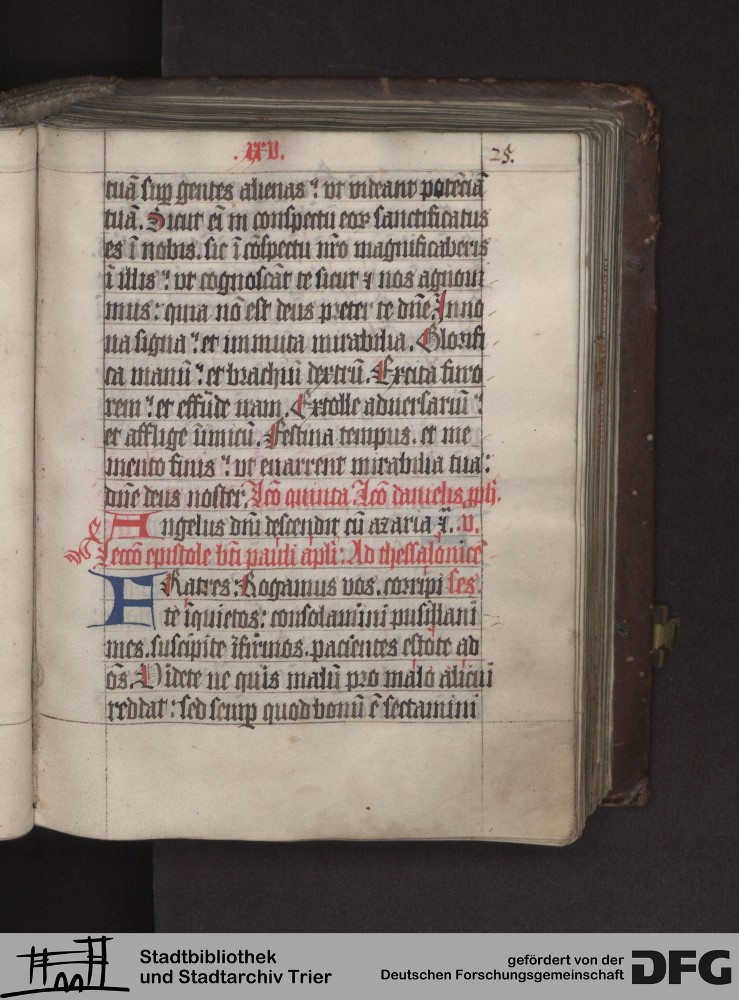 .xxv.
25.
tuā sup̱ gentes alienas : vt videant potēciā
tuā. Sicut eī in conspectu eoꝝ sanctificatus
es ī nobis. sic ī cōspectu nr̄o magnificaberis
ī illis : vt cognoscāt te sicut ⁊ nos agnoui
mus : quia nō est deus preter te dn̄e. Inno
ua signa : et immuta mirabilia. Glorifi
ca manū : et brachiū dextrū. Excita furo
rem : et effūde iram. Extolle aduersariū :
et afflige īimicū. Festina tempus. et me
mento finis : vt enarrent mirabilia tua :
dn̄e deus noster. Lcō quinta. Lcō danielis ꝓph.
Angelus dn̄i descendit cū azaria ⁊. v.
Leccō epistole bt̄i pauli apl̄i : Ad thessalonicē
FRatres : Rogamus vos. corripi ses.
te īquietos : consolamini pusillani
mes. suscipite īfirmos. pacientes estote ad
ōs. Videte ne quis malū pro malo alicui
reddat : sed semp̱ quod bonū ē sectamini
Stadtbibliothek
und Stadtarchiv Trier
gefördert von der
Deutschen Forschungsgemeinschaft
DFG